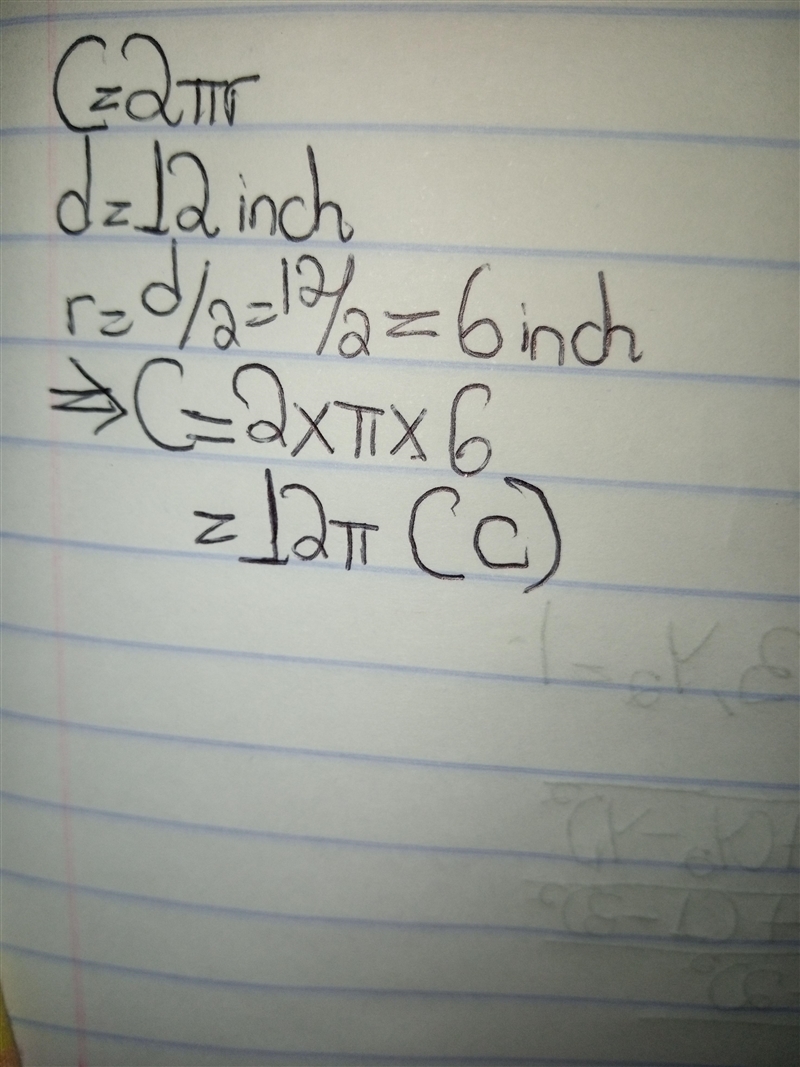 C=2πr
d=12 inch
r=d/2=12/2=6 inch
⇒C=2×π×6
=12π (C)